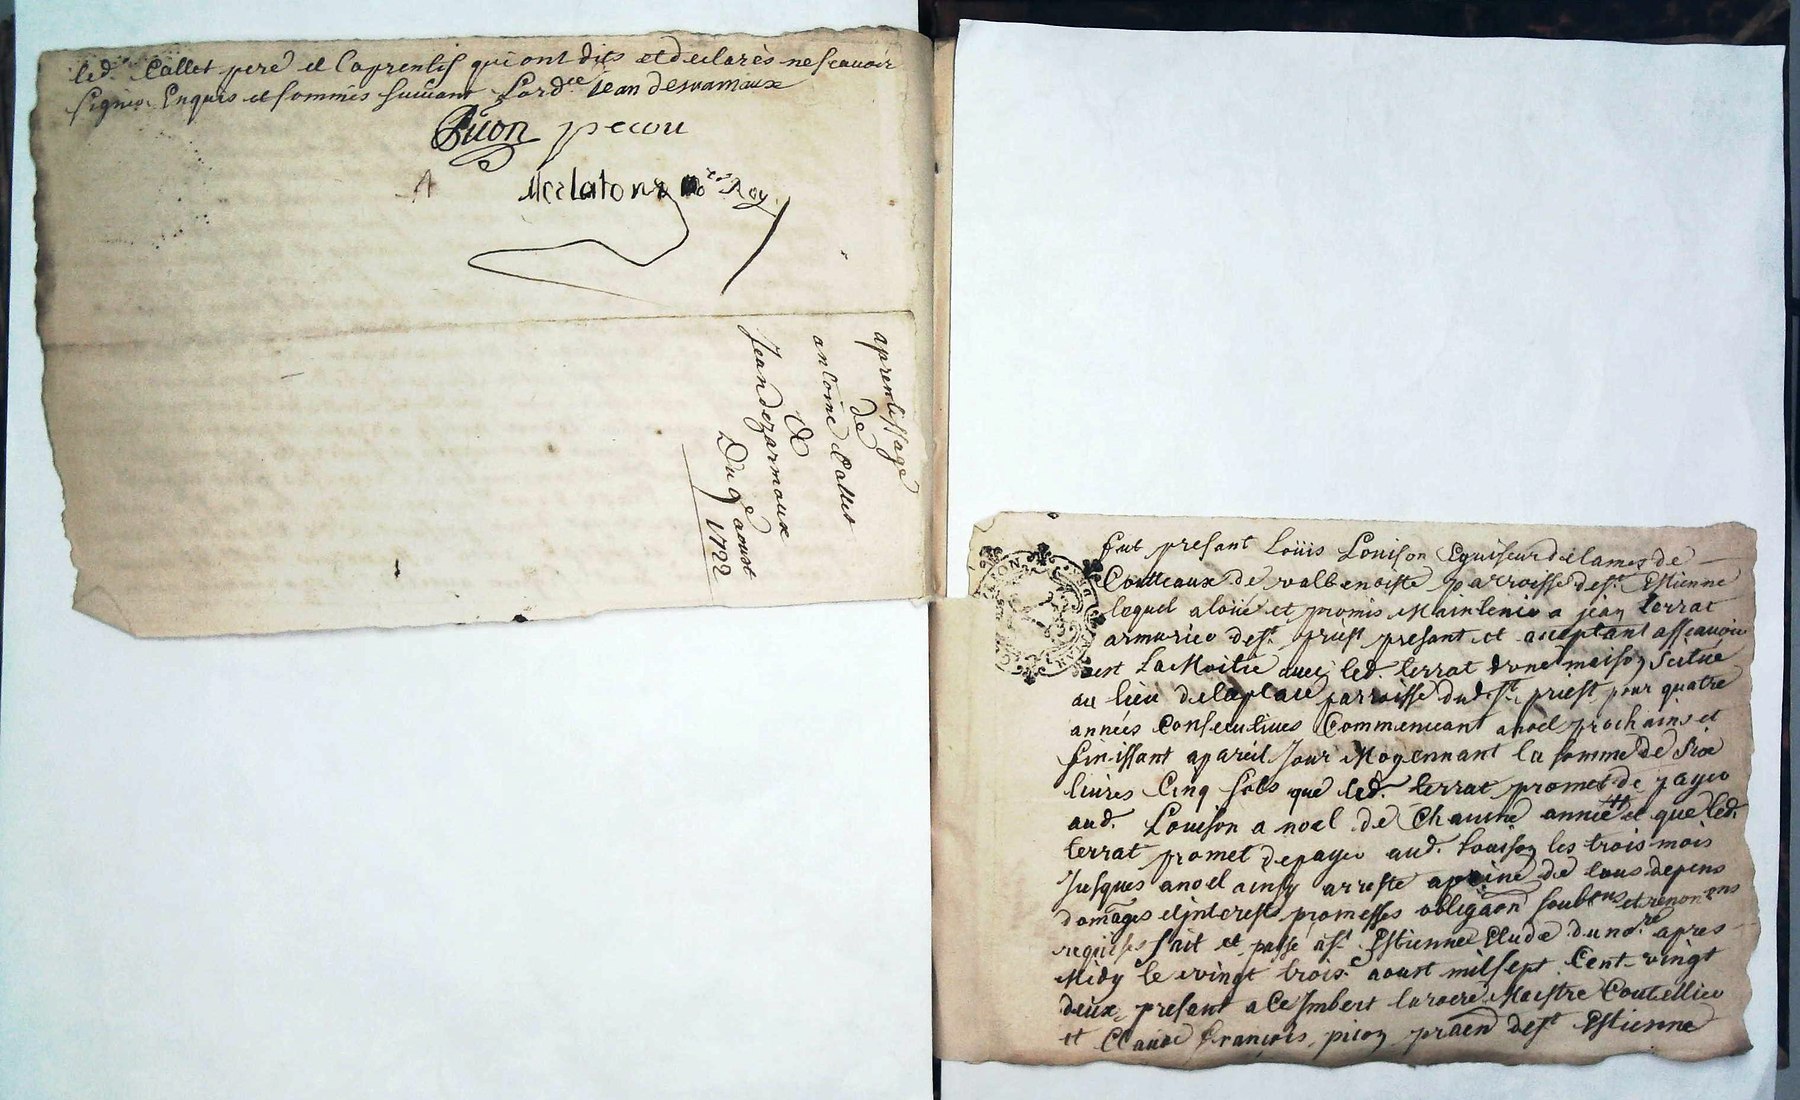 led. Callet pere et Laprentif qui ont dits et declarés ne scavoir
signer Enquis et sommés suivant Lord.ce Jean desvarnaux
Picon pecou
Merlaton no.re Roy
aprentissage
de
antoine Callet
&
Jean dezarmaux
Du 9e aoust
1722
fut presant Loüis Louison Eguiseur de lames de
Coutteaux de valbenoiste parroisse de st. Estienne
lequel a loüé et promis Maintenir a jean terrat
armurier de st. priest presant et aceptant assavoir
est La Moitié avec led. terrat d'une maison scitué
au lieu de la place parroisse dud. st. priest pour quatre
années Consecutives Commencant a noel prochains et
finissant a pareil Jour Moyennant la somme de Six
livres Cinq sols que led. terrat promet de payer
aud. Louison a noel de Chacune année et que led.
terrat promet de payer aud. Louison les trois mois
Jusques a noel ainsy arresté a peine de tous depens
domages et interests promesses obligaon soubons et renonons
requises fait et passé a st. Estienne Etude du no.re apres
Midy le vingt trois.e aoust mil sept Cent vingt
deux, presant a Ce Imbert Maistre Coutellier
et Claude françois picon praen de st. Estienne